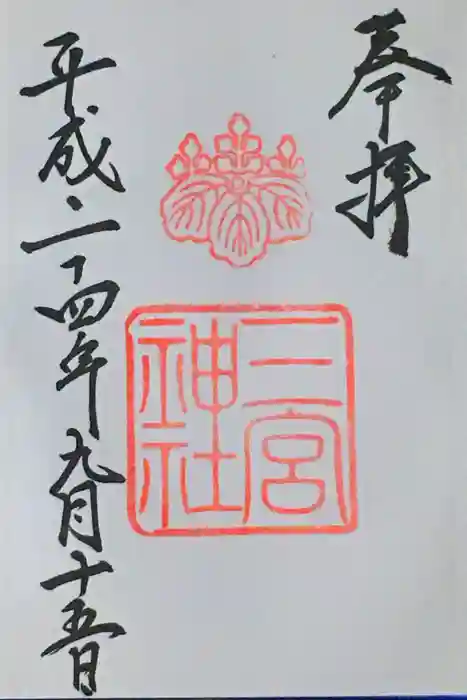 奉拝
三宮
神社
平成二十四年九月十五日